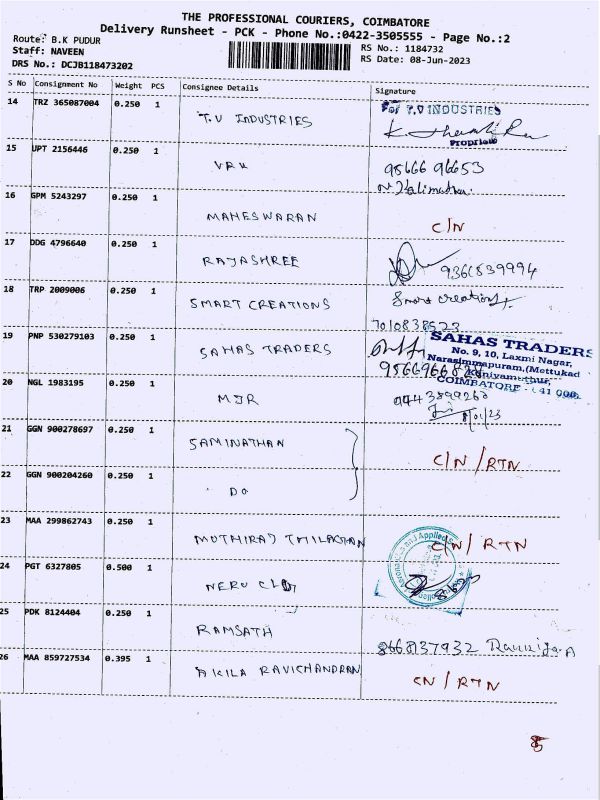 THE PROFESSIONAL COURIERS, COIMBATORE
Delivery Runsheet - PCK - Phone No.:0422-3505555 - Page No.:2
Route: B.K PUDUR
Staff: NAVEEN
DRS No.: DCJB118473202
RS No.: 1184732
RS Date: 08-Jun-2023
S No Consignment No Weight PCS Consignee Details Signature
14 TRZ 365087004 0.250 1 T.V INDUSTRIES For T.V INDUSTRIES
Proprietor
15 UPT 2156446 0.250 1 VRK 95666 96653
16 GPM 5243297 0.250 1 MAHESWARAN C/N
17 DDG 4796640 0.250 1 RAJASHREE 9361839994
18 TRP 2009006 0.250 1 SMART CREATIONS Smart creations
7010838523
19 PNP 530279103 0.250 1 SAHAS TRADERS SAHAS TRADERS
No. 9, 10, Laxmi Nagar,
Narasimmapuram,(Mettukad
Kuniyamuthur,
COIMBATORE - 641 008.
20 NGL 1983195 0.250 1 MJR
21 GGN 900278697 0.250 1 SAMINATHAN C/N / RTN
22 GGN 900204260 0.250 1 DO
23 MAA 299862743 0.250 1 MUTHIRAJ THILAGHAN C/N / RTN
24 PGT 6327805 0.500 1 NERU
25 PDK 8124404 0.250 1 RAMSATH 8668137932
26 MAA 859727534 0.395 1 AKILA RAVICHANDRAN CN / RTN